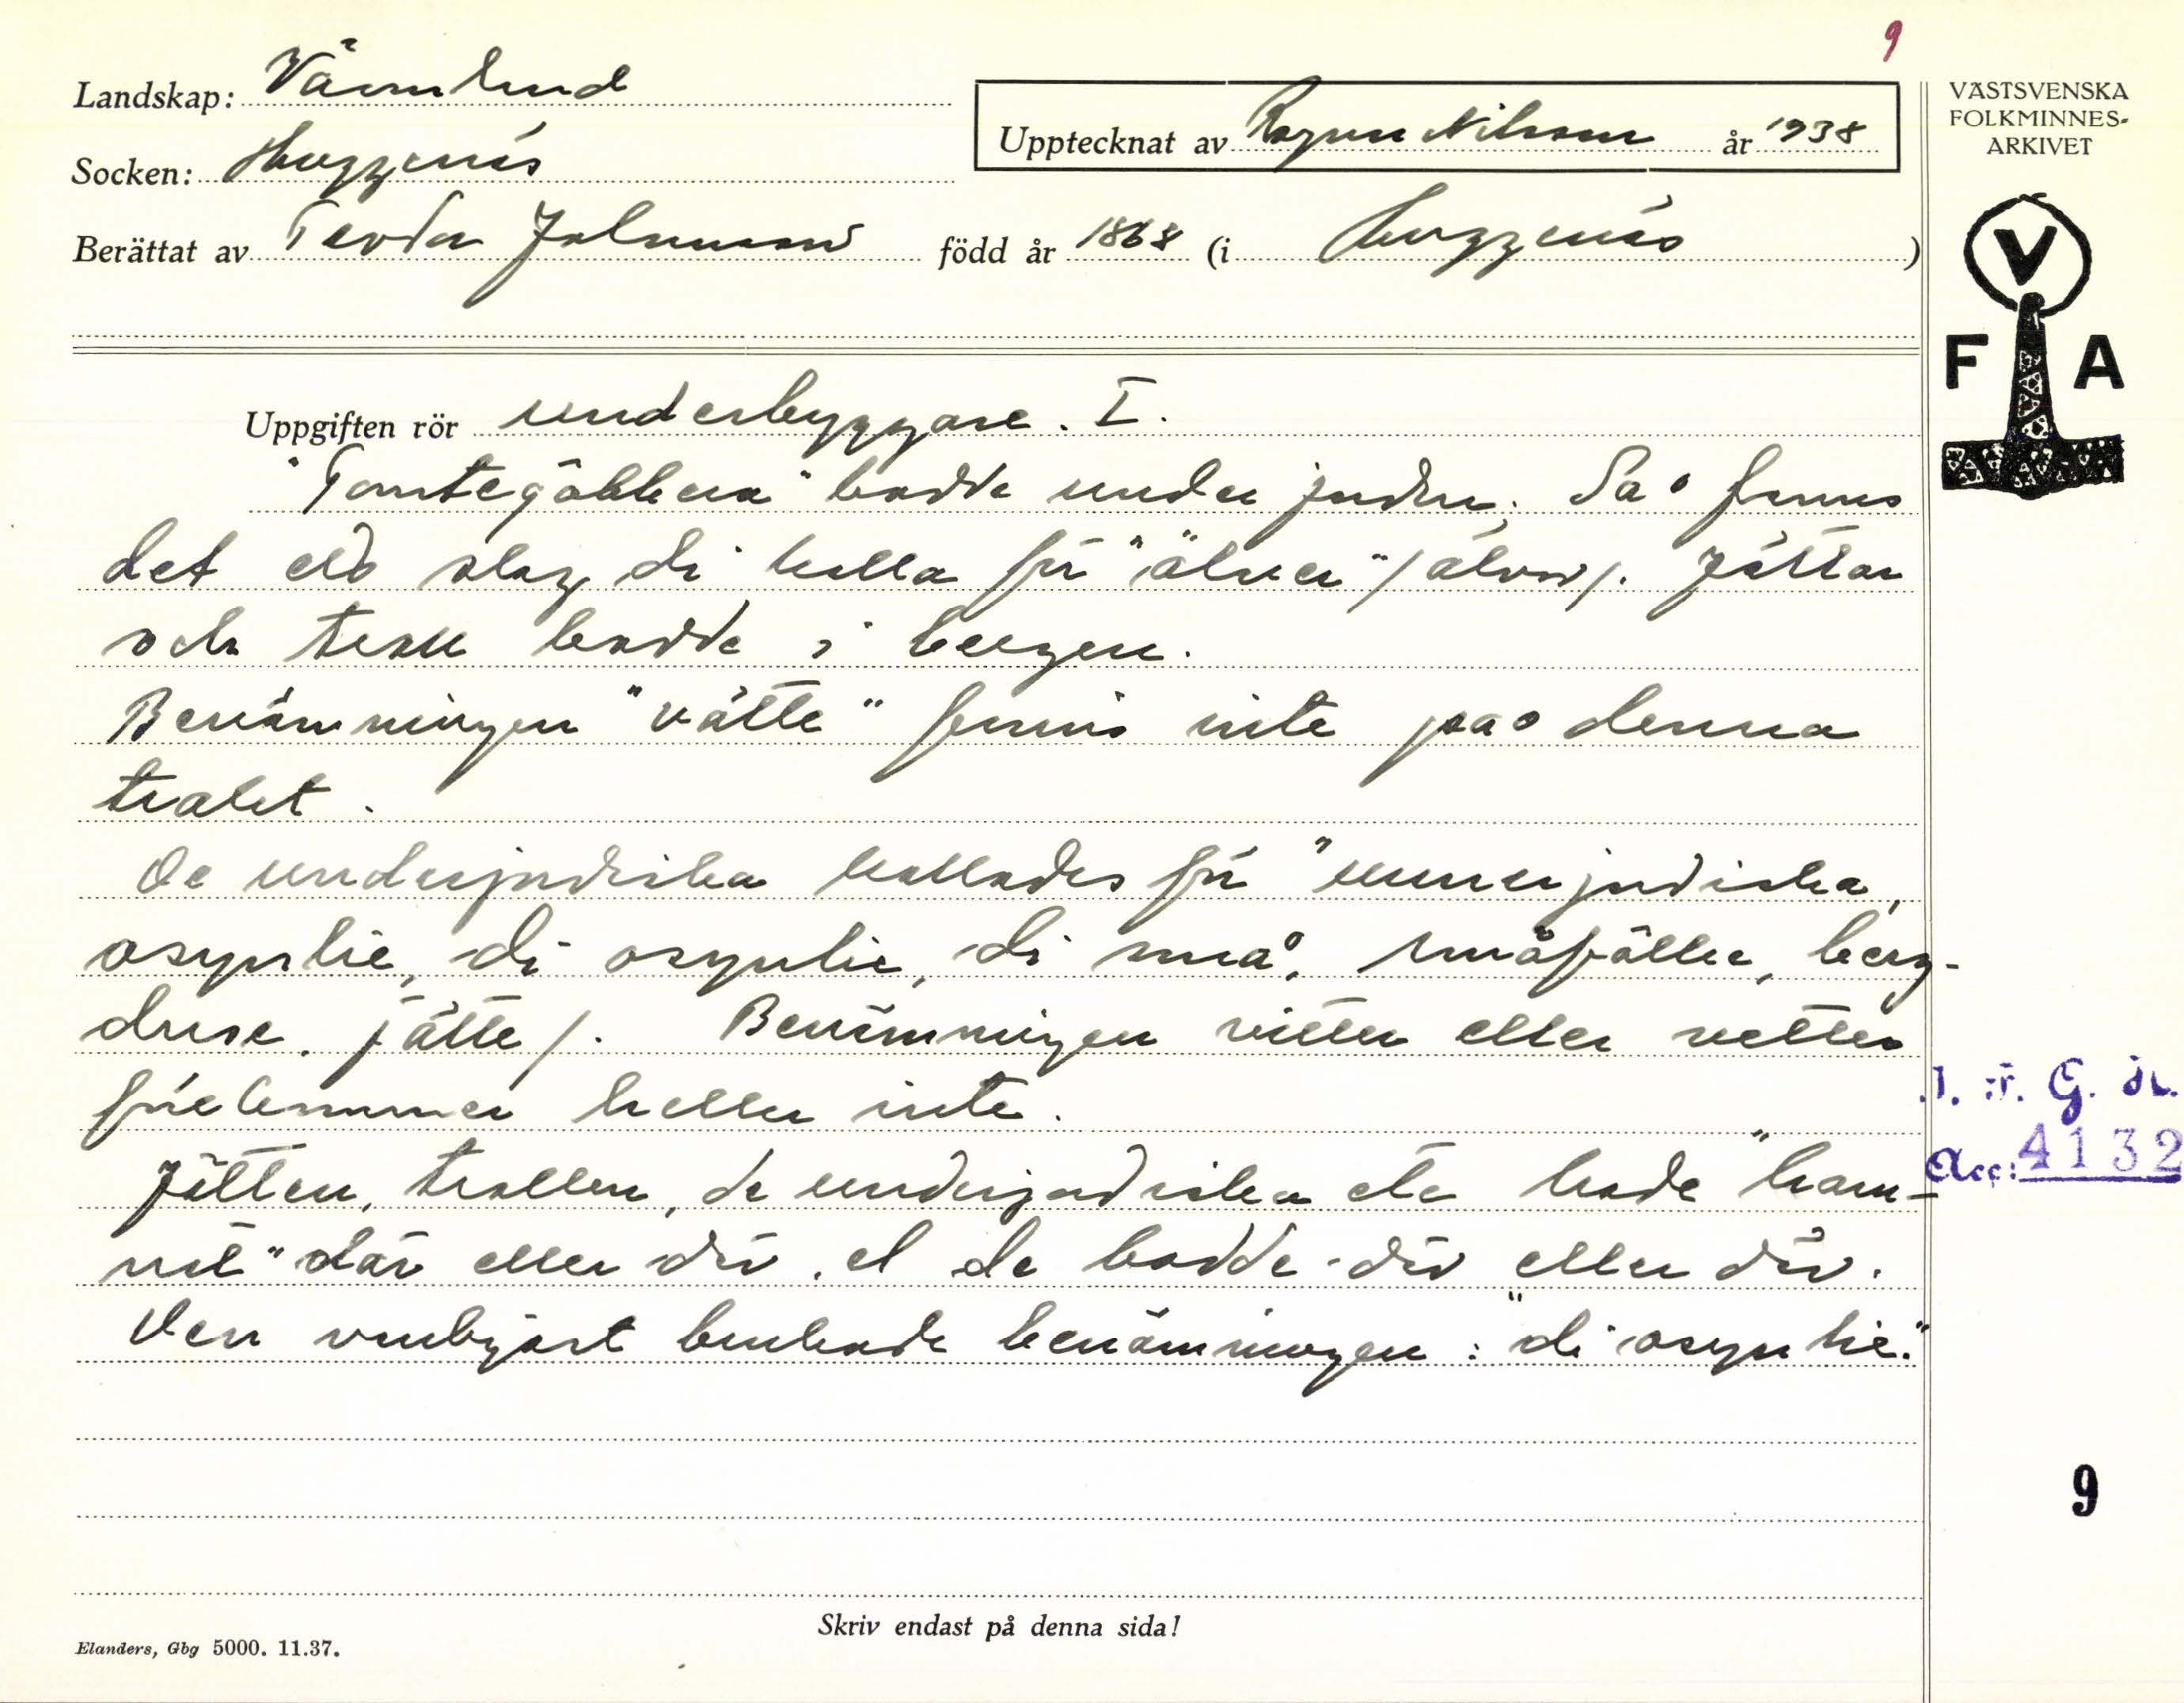 9
Landskap: Värmland
Upptecknat av Ragnar Nilsson år 1938
VÄSTSVENSKA
FOLKMINNES-
ARKIVET
Socken: Huggenäs
Berättat av Johansson född år 1868 (i Huggenäs)
V
F A
Uppgiften rör underbyggare. I.
"Tomtegöbbera" bodde under jorden. Så fanns
det ett slag di kalla för "älver" /älvor/. Jättar
och troll bodde i bergen.
Benämningen "vätte" fanns inte på denna
trakt.
De underjordiska kallades för "unnerjordiska,
osynlie, di osynlie, di små, småfôlke, berg-
duse. jätte/. Benämningen vitter eller vetter
förekommer heller inte.
Jätten, trollen, de underjordiska etc hade "ham-
net" där eller där. el de bodde där eller där.
Den vanligast brukade benämningen: "di osynlie."
Acc: 4132
9
Skriv endast på denna sida!
Elanders, Gbg 5000. 11.37.